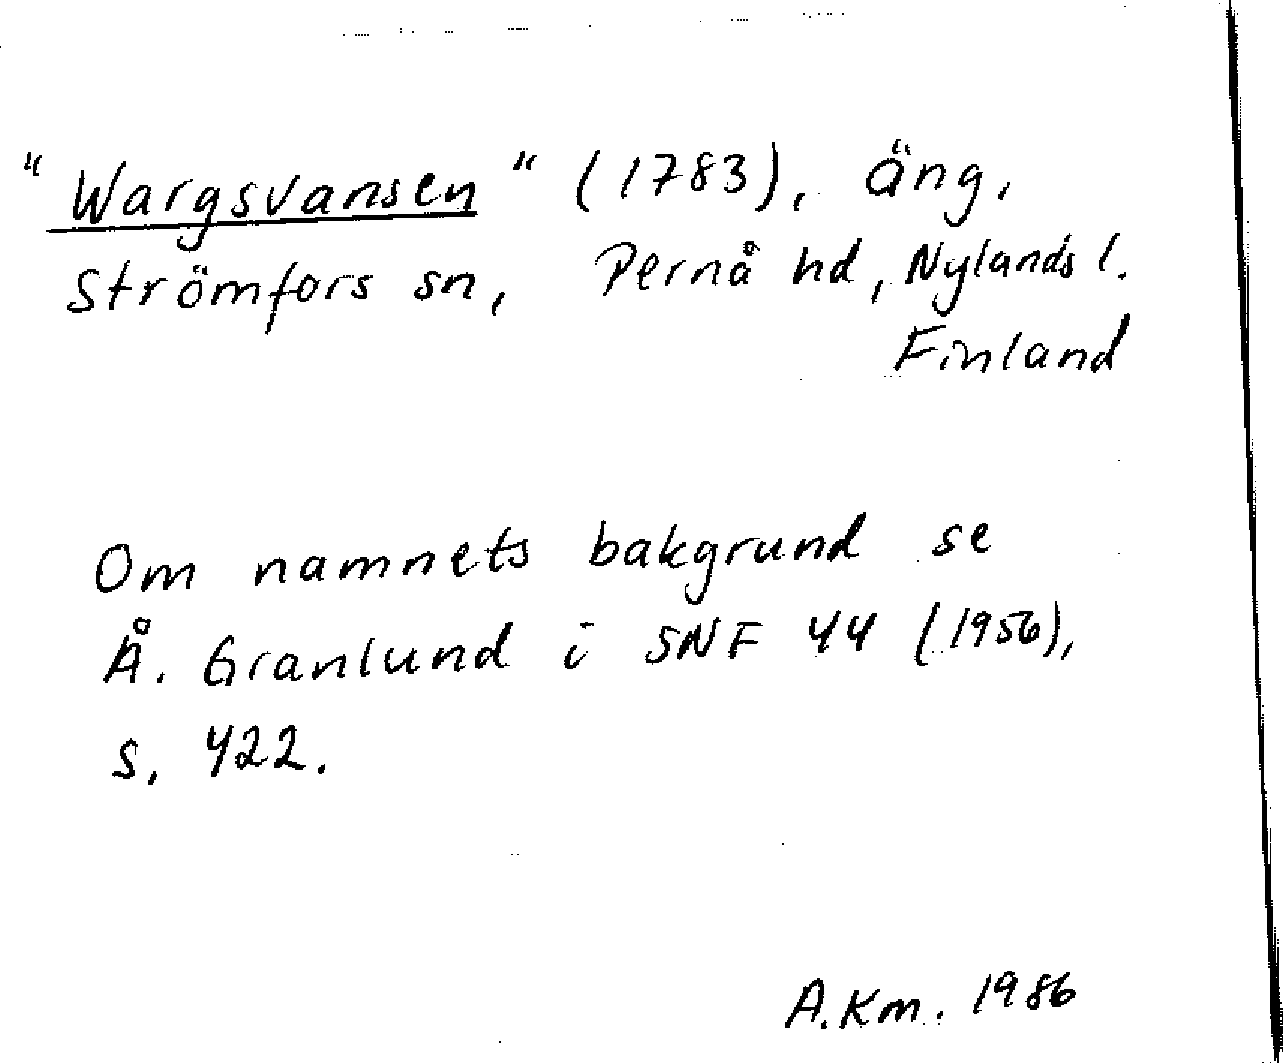 "Wargsvansen" (1783), äng,
Strömfors sn, Pernå hd, Nylands l.
Finland
Om namnets bakgrund se
Å. Granlund i SNF 44 (1956),
s. 422.
A.Km. 1986